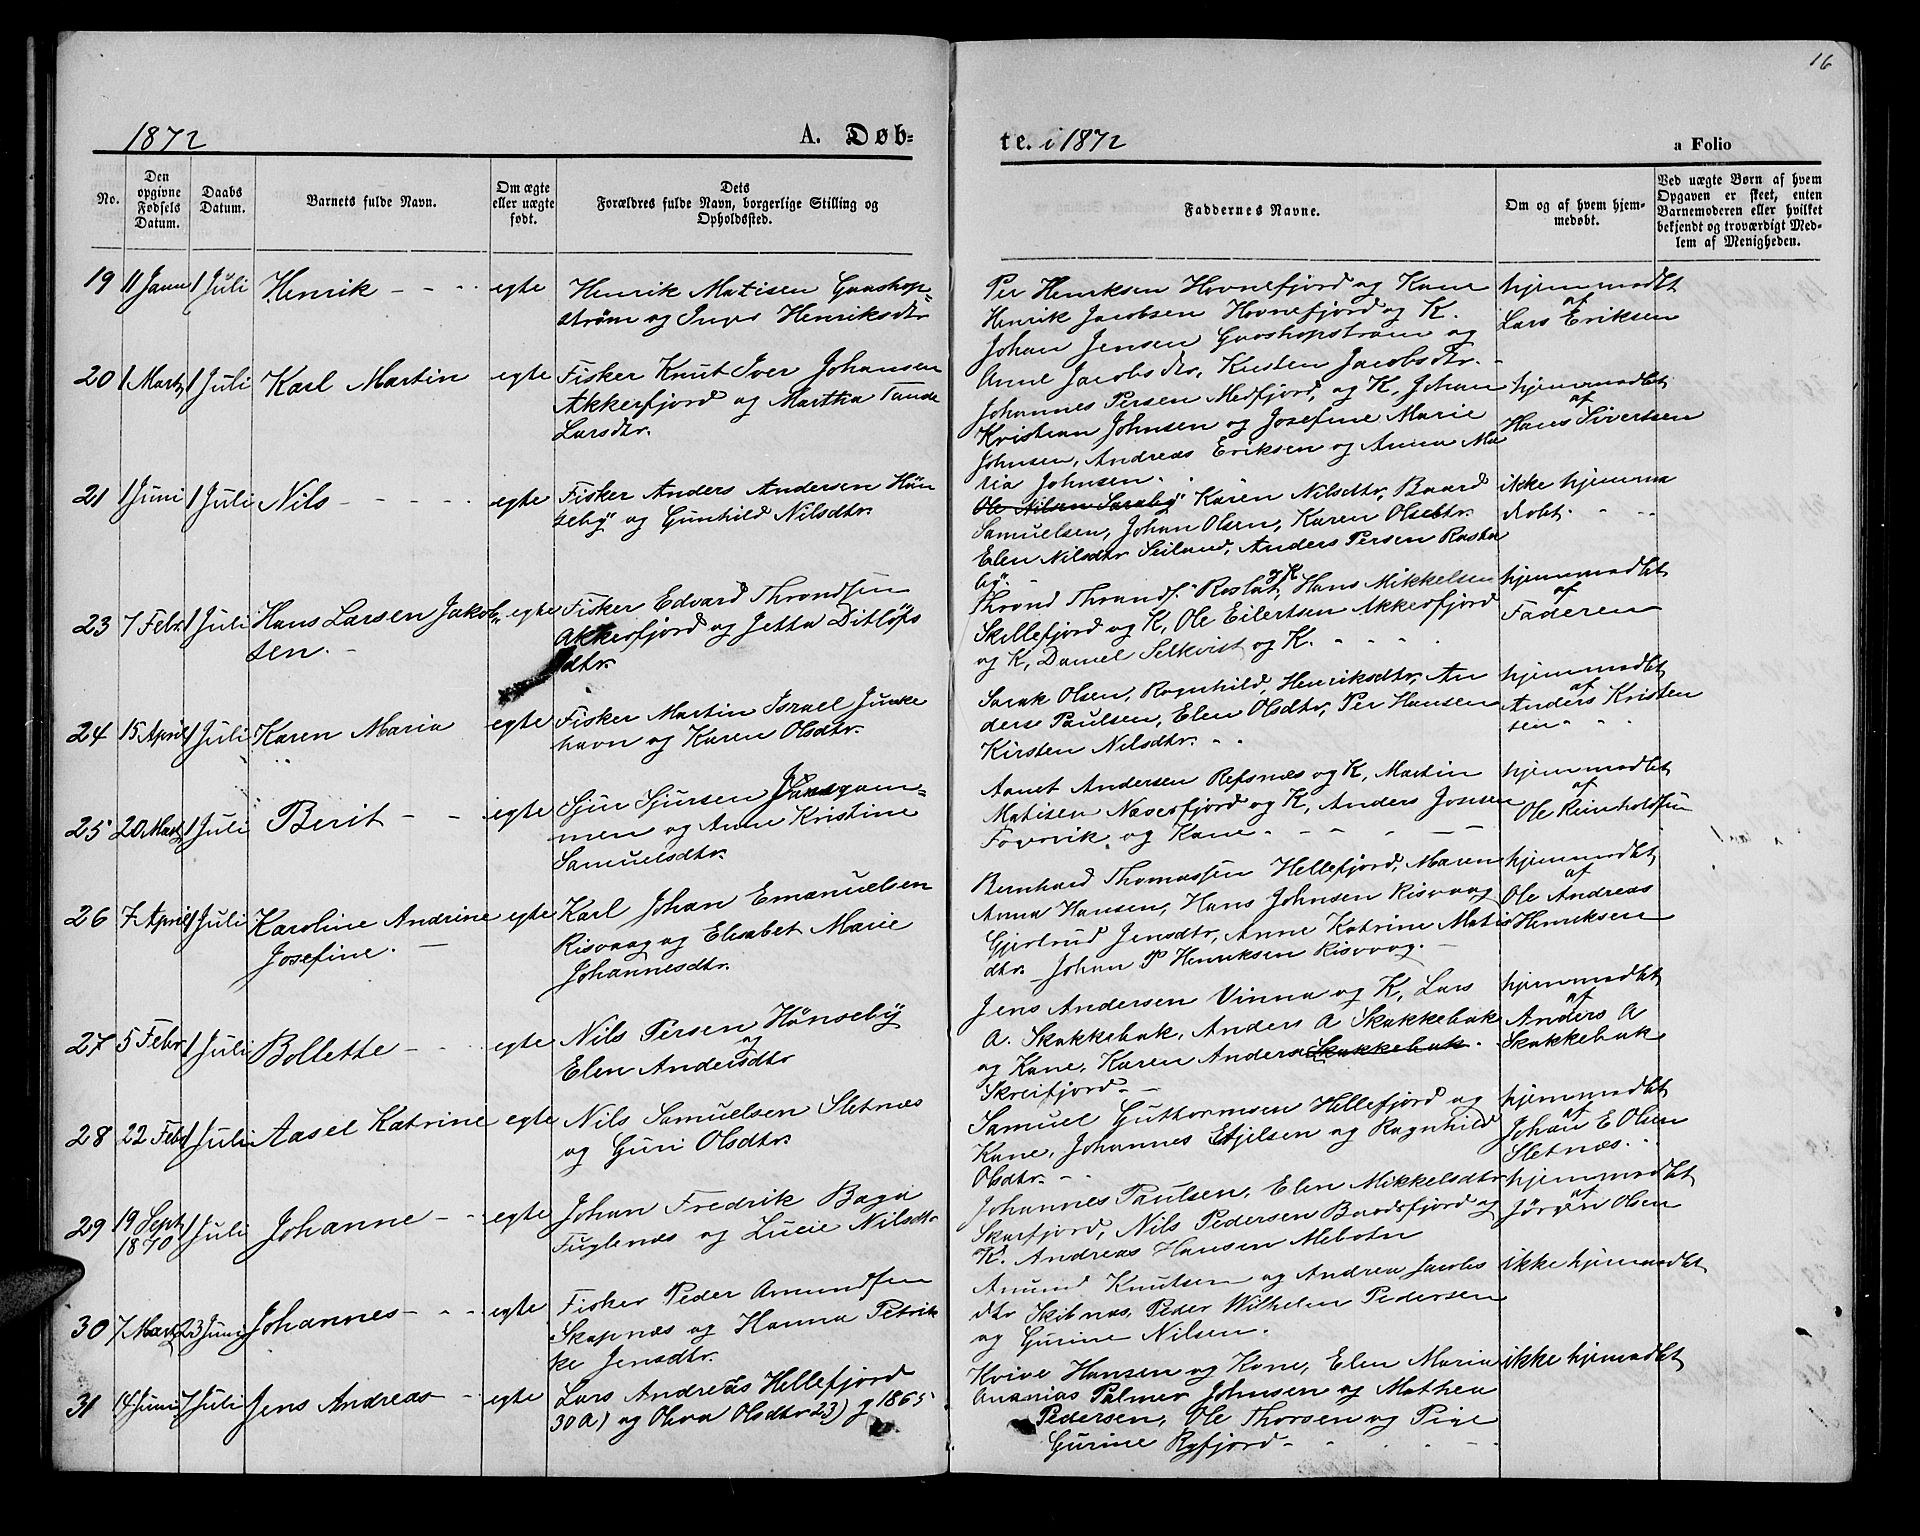 16
1872
A. Døb-
te. i 1872
a Folio
No.
Den opgivne Fødsels Datum.
Daabs Datum.
Barnets fulde Navn.
Om ægte eller uægte født.
Dets Forældres fulde Navn, borgerlige Stilling og Opholdssted.
Faddernes Navne.
Om og af hvem hjem-medøbt.
Ved uægte Børn af hvem Opgaven er skeet, enten Barnemoderen eller hvilket bekjendt og troværdigt Med-lem af Menigheden.
19 11 Janu 1 Juli Henrik - - - egte
Henrik Matisen Gaashop=
strøm og Inger Henriksdtr
Per Henrksen Hovnefjord og Kone
Henrik Jacobsen Hovnefjord og K.
Johan Jensen Gaashopstrøm og
Anne Jacobsdtr, Kirsten Jacobsdtr. -
hjemmedbt
af
Lars Eriksen
20 1 Marts 1 Juli Karl Martin egte
Fisker Knut Iver Johansen
Akkerfjord og Martha Tande
Larsdtr.
Johannes Persen Medfjord, og K, Johan
Kristian Johnsen og Josefine Marie
Johnsen, Andreas Eriksen og Anna Ma
ria Johnsen.
hjemmedbt
af
Hans Sivertsen
21 1 Juni 1 Juli Nils - - - - - egte
Fisker Anders Andersen Høn
seby og Gunhild Nilsdtr.
Ole Nilsen Saraby Karen Nilsdtr, Baard
Samuelsen, Johan Olsen, Karen Olsdtr.
Elen Nilsdtr Seiland, Anders Persen Rasta
by. -
ikke hjemme
døbt. - - -
23 7 Febr. 1 Juli Hans Larsen Jakob- egte
sen. -
Fisker Edvard Throndsen
Akkerfjord og Jetta Ditløfs
dtr.
Thrond Thronds. Rastat, og K, Hans Mikkelsen
Skillefjord og K, Ole Eilertsen Akkerfjord
og K, Daniel Selkvist og K. - - -
hjemmedbt
af
Faderen
24 15 April 1 Juli Karen Maria egte
Fisker Martin Israel Junke
havn og Karen Olsdtr.
Sarak Olsen, Ragnhild, Henriksdtr, An
ders Paulsen, Elen Olsdtr, Per Hansen
Kirsten Nilsdtr. - -
hjemmedbt
af
Anders Kristen
sen - -
25 20 Marts 1 Juli Berit - - egte
Sjur Sjursen
men og Anne Kristine
Samuelsdtr.
Aanet Andersen Refsnæs og K, Martin
Matisen Næverfjord og K, Anders Jonsen
og Kone - - - - -
hjemmedbt
af
Ole Reinholdsen
26 7 April 1 Juli Karoline Andrine egte
Josefine. -
Karl Johan Emanuelsen
Risvaag og Elisabet Marie
Johannesdtr.
Bernhard Thomassen Hellefjord, Maren
Anna Hansen, Hans Johnsen Risvaag
Gjertrud Jensdtr, Anne Katrine Matis
dtr. Johan P Henriksen Risvaag. -
hjemmedbt
af
Ole Andreas
Henriksen
27 5 Febr 1 Juli Bollette - - - egte
Nils Persen Hønseby
og
Elen Andersdtr
Jens Andersen Vinna og K, Lars
A. Skakkebak, Anders A Skakkebak
og Kone, Karen Anders Skakkebak.
Skreifjord. - -
hjemmedbt
af
Anders A
Skakkebak
28 22 Febr 1 Juli Aasel Katrine egte
Nils Samuelsen Sletnæs
og Guri Olsdtr.
Samuel Guttormsen Hellefjord og
Kone, Johannes Etjelsen og Ragnhild
Olsdtr. - -
hjemmedbt
af
Johan E Olsen
Sletnæs. - -
29 19 Sept 1870 1 Juli Johanne - - egte
Johan Fredrik Baga
Fuglenæs og Lucie Nilsdtr
Johannes Paulsen, Elen Mikkelsdtr
Skarfjord, Nils Pedersen Baadsfjord og
K. Andreas Hansen Mebotn
hjemmedbt
af
Jørgen Olsen
30 7 Marts 23 Juni Johannes - - - egte
Fisker Peder Amundsen
Skapnæs og Hanna Petrik
ke Jensdtr.
Amund Knutsen og Andrea Jacobs
dtr Skibnæs, Peder Wilhelm Pedersen
og Gurine Nilsen.
ikke hjemmedbt
31 14 Juni 7 Juli Jens Andreas - - egte
Lars Andreas Hellefjord
30 A) og Oliva Olsdtr 23) g 1865
Kvive Hansen og Kone, Elen Maria
Ananias Palmer Johnsen og Mathea
Pedersen, Ole Thorsen og Pige
Gurine Ryfjord - - - - -
ikke hjemedbt